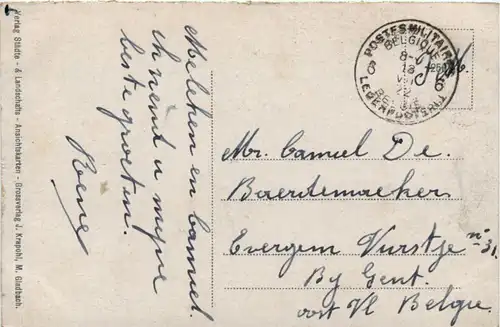 Verlag Städte- & Landschafts-Ansichtskarten - Grossverlag J. Krapohl, M. Gladbach.
Melchen en Camiel
ik neind u mijne
beste groeten.
Rene
POSTES MILITAIRES
BELGIQUE
8-
18
VII
22
6 6
BELGIE
LEGERPOSTERIJ
Mr. Camiel De.
Baerdemaeker
Evergem Vurstje n° 31.
By Gent.
oost Vl Belgie